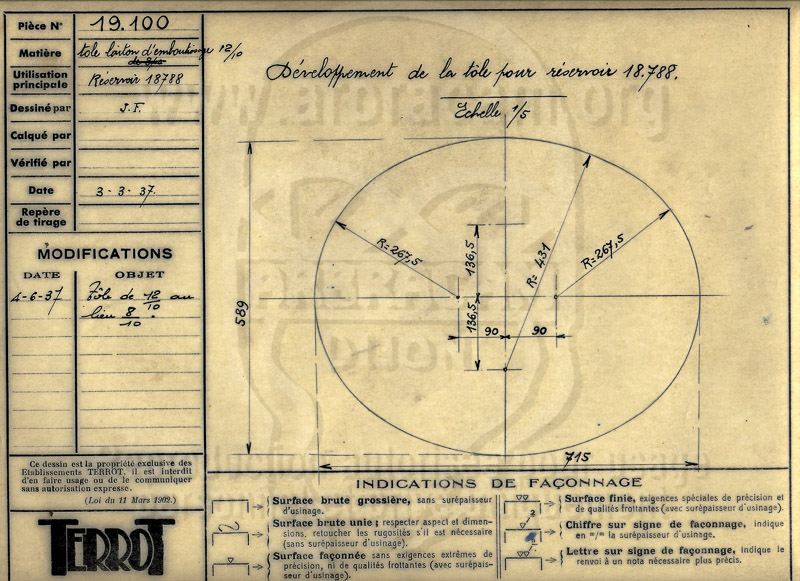 Pièce N° 19.100
Matière tôle laiton d'emboutissage 12/10
Utilisation
principale Réservoir 18788
Dessiné par J.F.
Calqué par
Vérifié par
Date 3-3-37.
Repère
de tirage
MODIFICATIONS
DATE OBJET
4-6-37 Tôle de 12/10 au
lieu 8/10.
Ce dessin est la propriété exclusive des
Etablissements TERROT, il est interdit
d'en faire usage ou de le communiquer
sans autorisation expresse.
(Loi du 11 Mars 1902.)
TERROT
Développement de la tôle pour réservoir 18.788.
Echelle 1/5
R=267,5
136,5
R=431
R=267,5
589
136,5
90
90
715
INDICATIONS DE FAÇONNAGE
Surface brute grossière, sans surépaisseur
d'usinage.
Surface brute unie; respecter aspect et dimen-
sions, retoucher les rugosités s'il est nécessaire
(sans surépaisseur d'usinage).
Surface façonnée sans exigences extrêmes de
précision, ni de qualités frottantes (avec surépais-
seur d'usinage).
Surface finie, exigences spéciales de précision et
de qualités frottantes (avec surépaisseur d'usinage).
2
Chiffre sur signe de faconnage, indique
en m/m la surépaisseur d'usinage.
Lettre sur signe de façonnage, indique le
renvoi à un nota nécessaire plus précis.